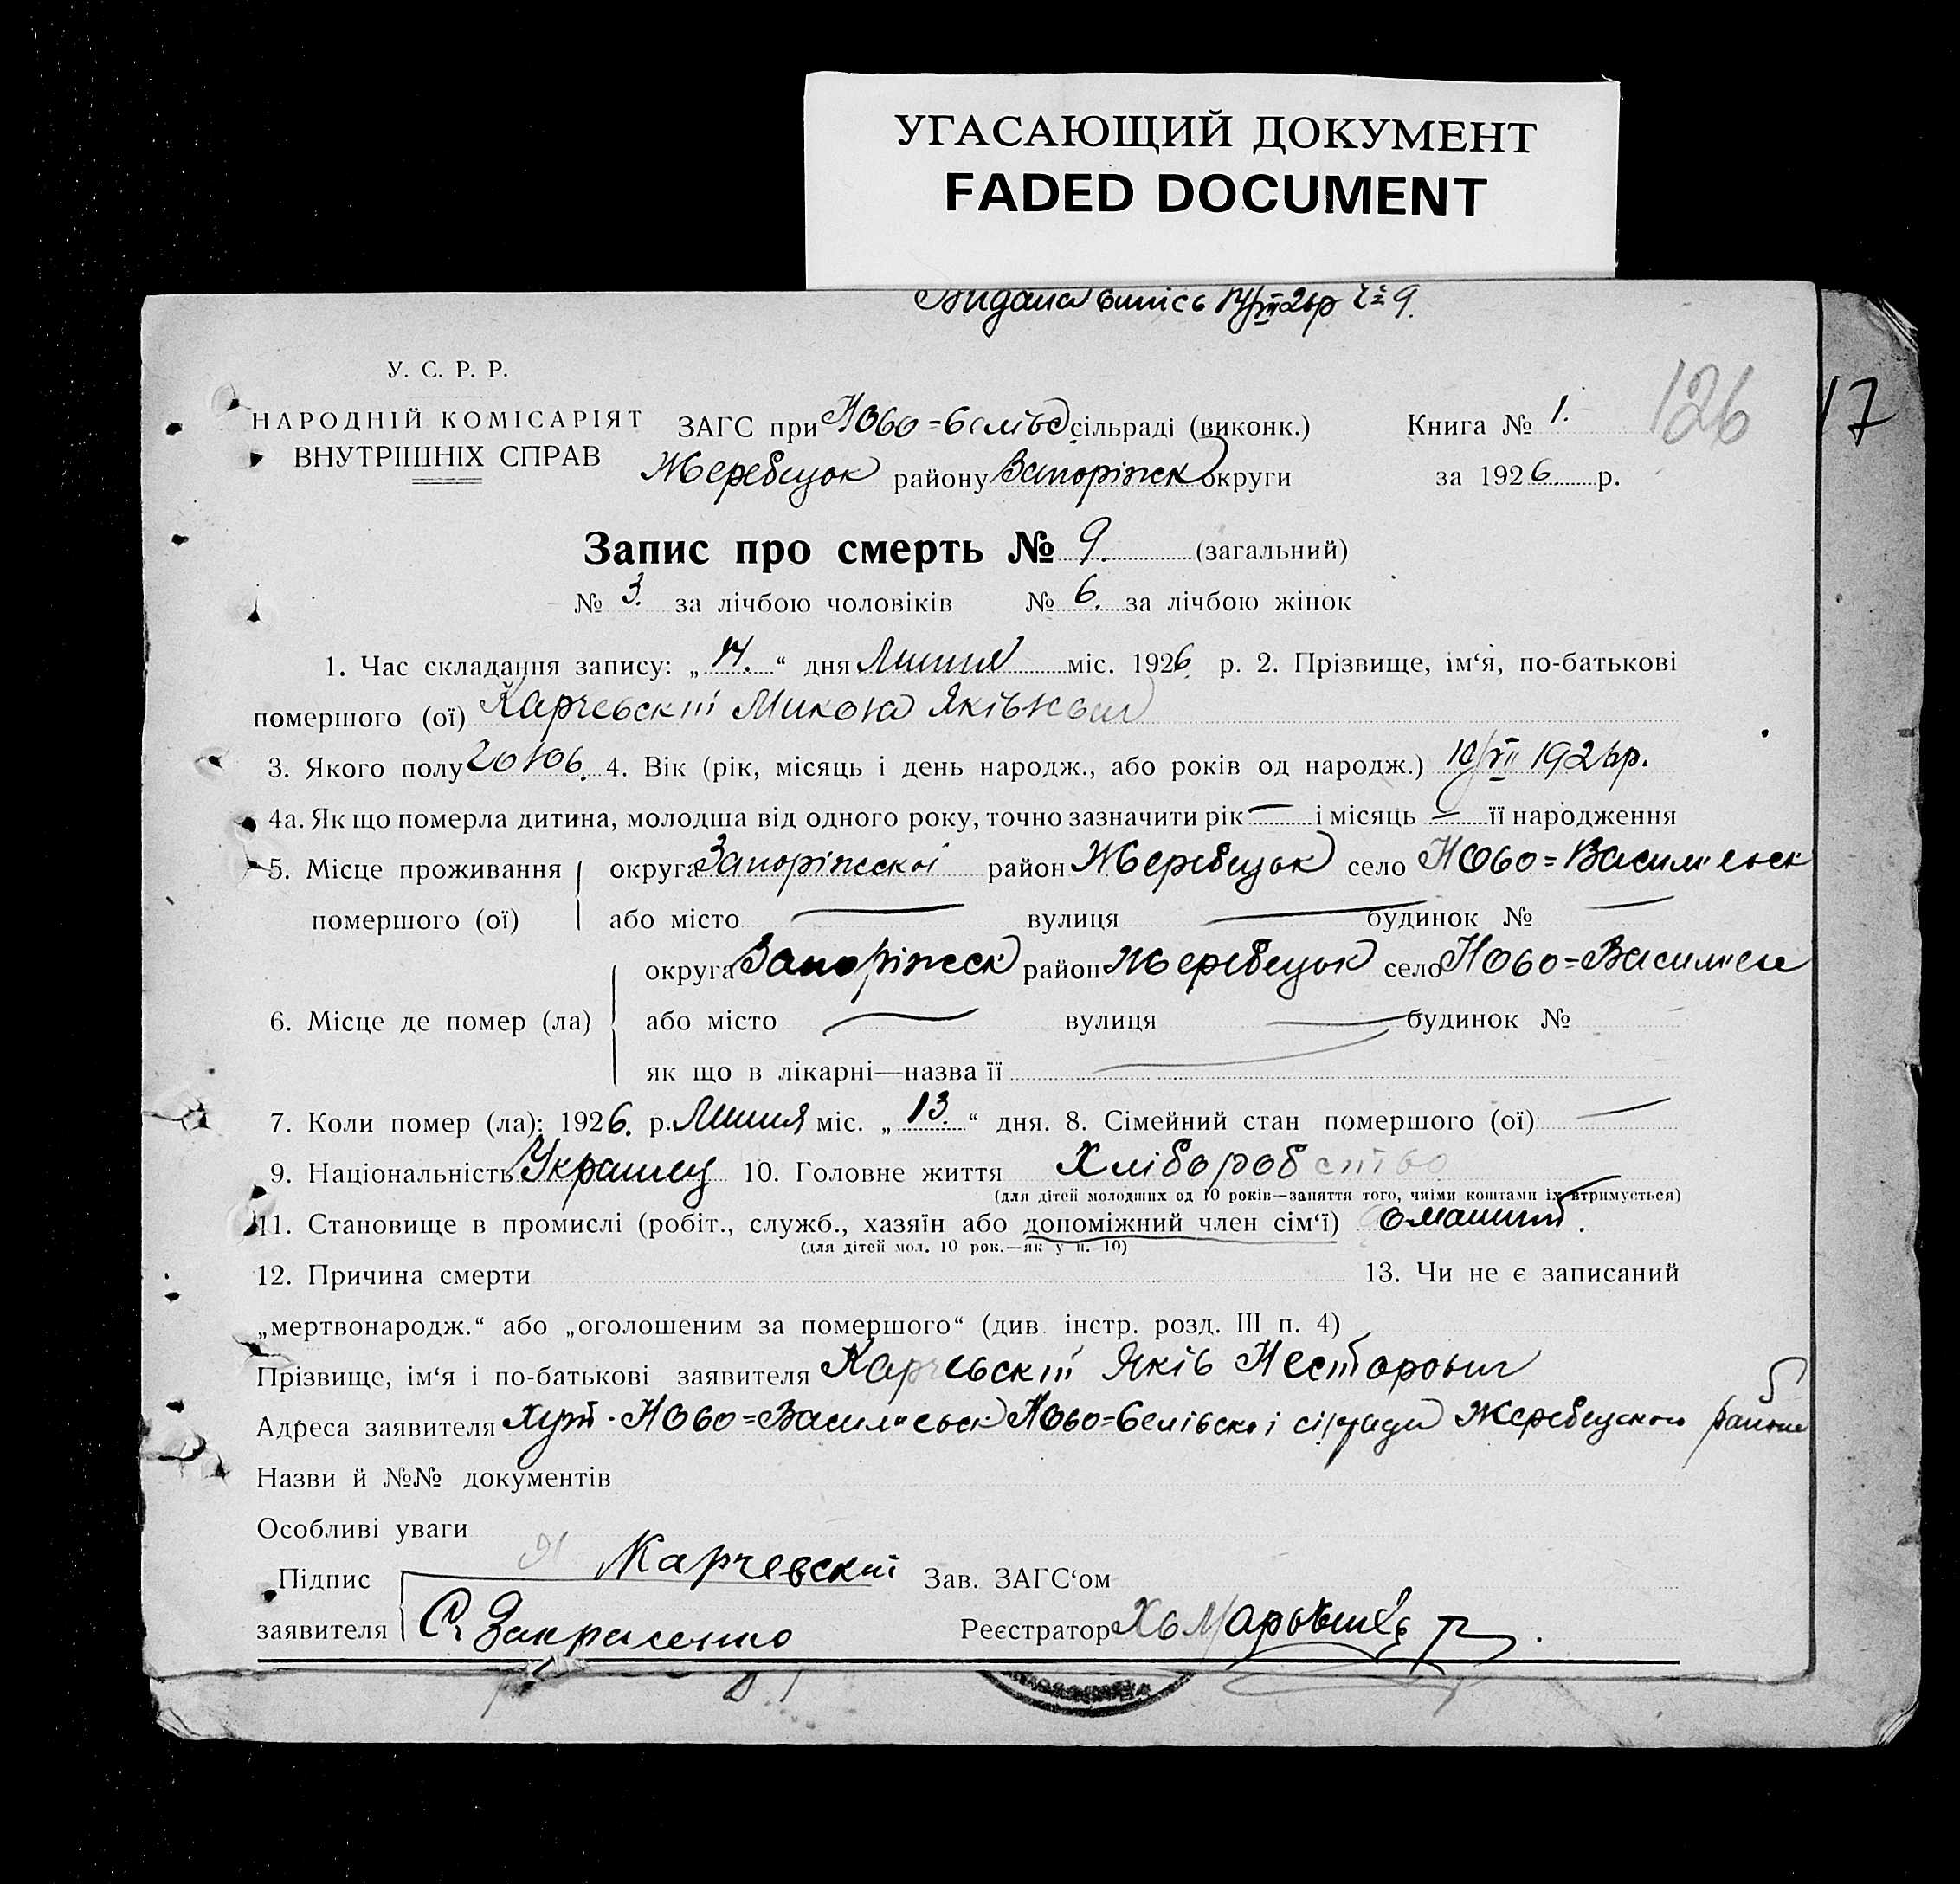 УГАСАЮЩИЙ ДОКУМЕНТ
FADED DOCUMENT
Видана випись № 9.
У. С. Р. Р.
НАРОДНІЙ КОМІСАРІЯТ
ВНУТРІШНІХ СПРАВ
ЗАГС при Ново= сільраді (виконк.)
Жеребецьк району Запоріжск округи
Книга № 1.
за 1926 р.
126
17
Запис про смерть № 9. (загальний)
№ 3. за лічбою чоловіків № 6. за лічбою жінок
1. Час складання запису: „14.“ дня Липня міс. 1926 р. 2. Прізвище, ім‘я, по-батькові
помершого (ої) Карчевскій Микола Яківович
3. Якого полу чолов. 4. Вік (рік, місяць і день народж., або років од народж.) 10/VII 1926р.
4а. Як що померла дитина, молодша від одного року, точно зазначити рік — і місяць — її народження
5. Місце проживання помершого (ої) округа Запоріжскої район Жеребецьк село Ново=Василевск
або місто — вулиця — будинок № —
6. Місце де помер (ла) округа Запоріжск район Жеребецьк село Ново=Василев
або місто — вулиця — будинок №
як що в лікарні—назва її
7. Коли помер (ла): 1926. р. Липня міс. „13.“ дня. 8. Сімейний стан помершого (ої) —
9. Національність Українец 10. Головне життя Хліборобство
(для дітей молодших од 10 років—заняття того, чиїми коштами їх втримується)
11. Становище в промислі (робіт., служб., хазяїн або допоміжний член сім‘ї)
(для дітей мол. 10 рок.—як у п. 10)
12. Причина смерти 13. Чи не є записаний
„мертвонародж.“ або „оголошеним за помершого“ (див. інстр. розд. III п. 4)
Прізвище, ім‘я і по-батькові заявителя Карчевскій Яків Несторович
Адреса заявителя хут. Ново=Василевск Ново= сільради Жеребецького района
Назви й №№ документів
Особливі уваги
Підпис Я Карчевскій Зав. ЗАГС‘ом
заявителя Реєстратор